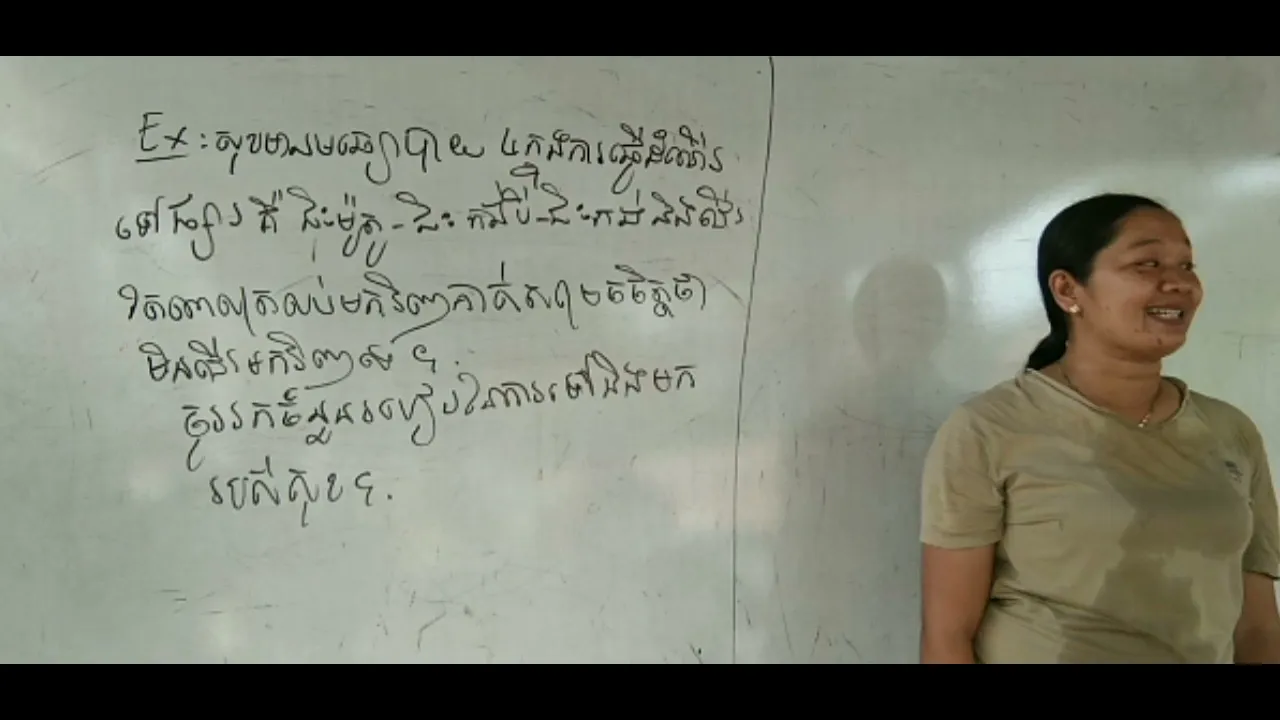 Ex : សុខមានមធ្យោបាយ ៤ក្នុងការធ្វើដំណើរ
ទៅផ្សារ គឺ ជិះម៉ូតូ - ជិះ កង់បី - ជិះកង់ និងដើរ
តែពេលត្រលប់មកវិញគាត់សម្រេចចិត្តថា
មិនដើរមកវិញទេ ។
ចូររកចំនួនរបៀបនៃការទៅនិងមក
របស់សុខ ។